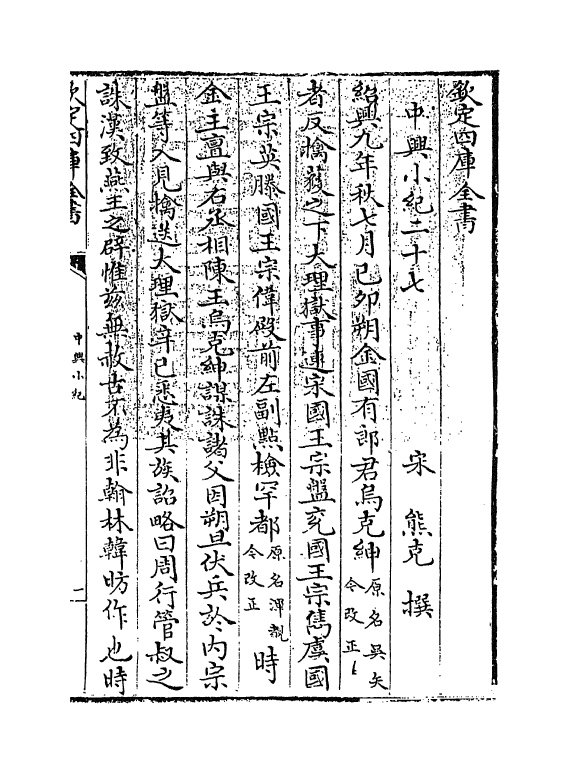 欽定四庫全書
中興小紀二十七
宋 熊克 撰
紹興九年秋七月已夘朔金國有郎君烏克紳原名吳矢今改正
者反擒獲之下大理獄事連宋國王宗盤兖國王宗雋虞國
王宗英滕國王宗偉殿前左副點檢罕都原名渾覩今改正時
金主亶與右丞相陳王烏克紳謀誅諸父因朔旦伏兵於内宗
盤等入見擒送大理獄辛已悉夷其族詔略曰周行管叔之
誅漢致燕王之辟惟兹無赦古不為非翰林韓昉作也時
欽定四庫全書
中興小紀